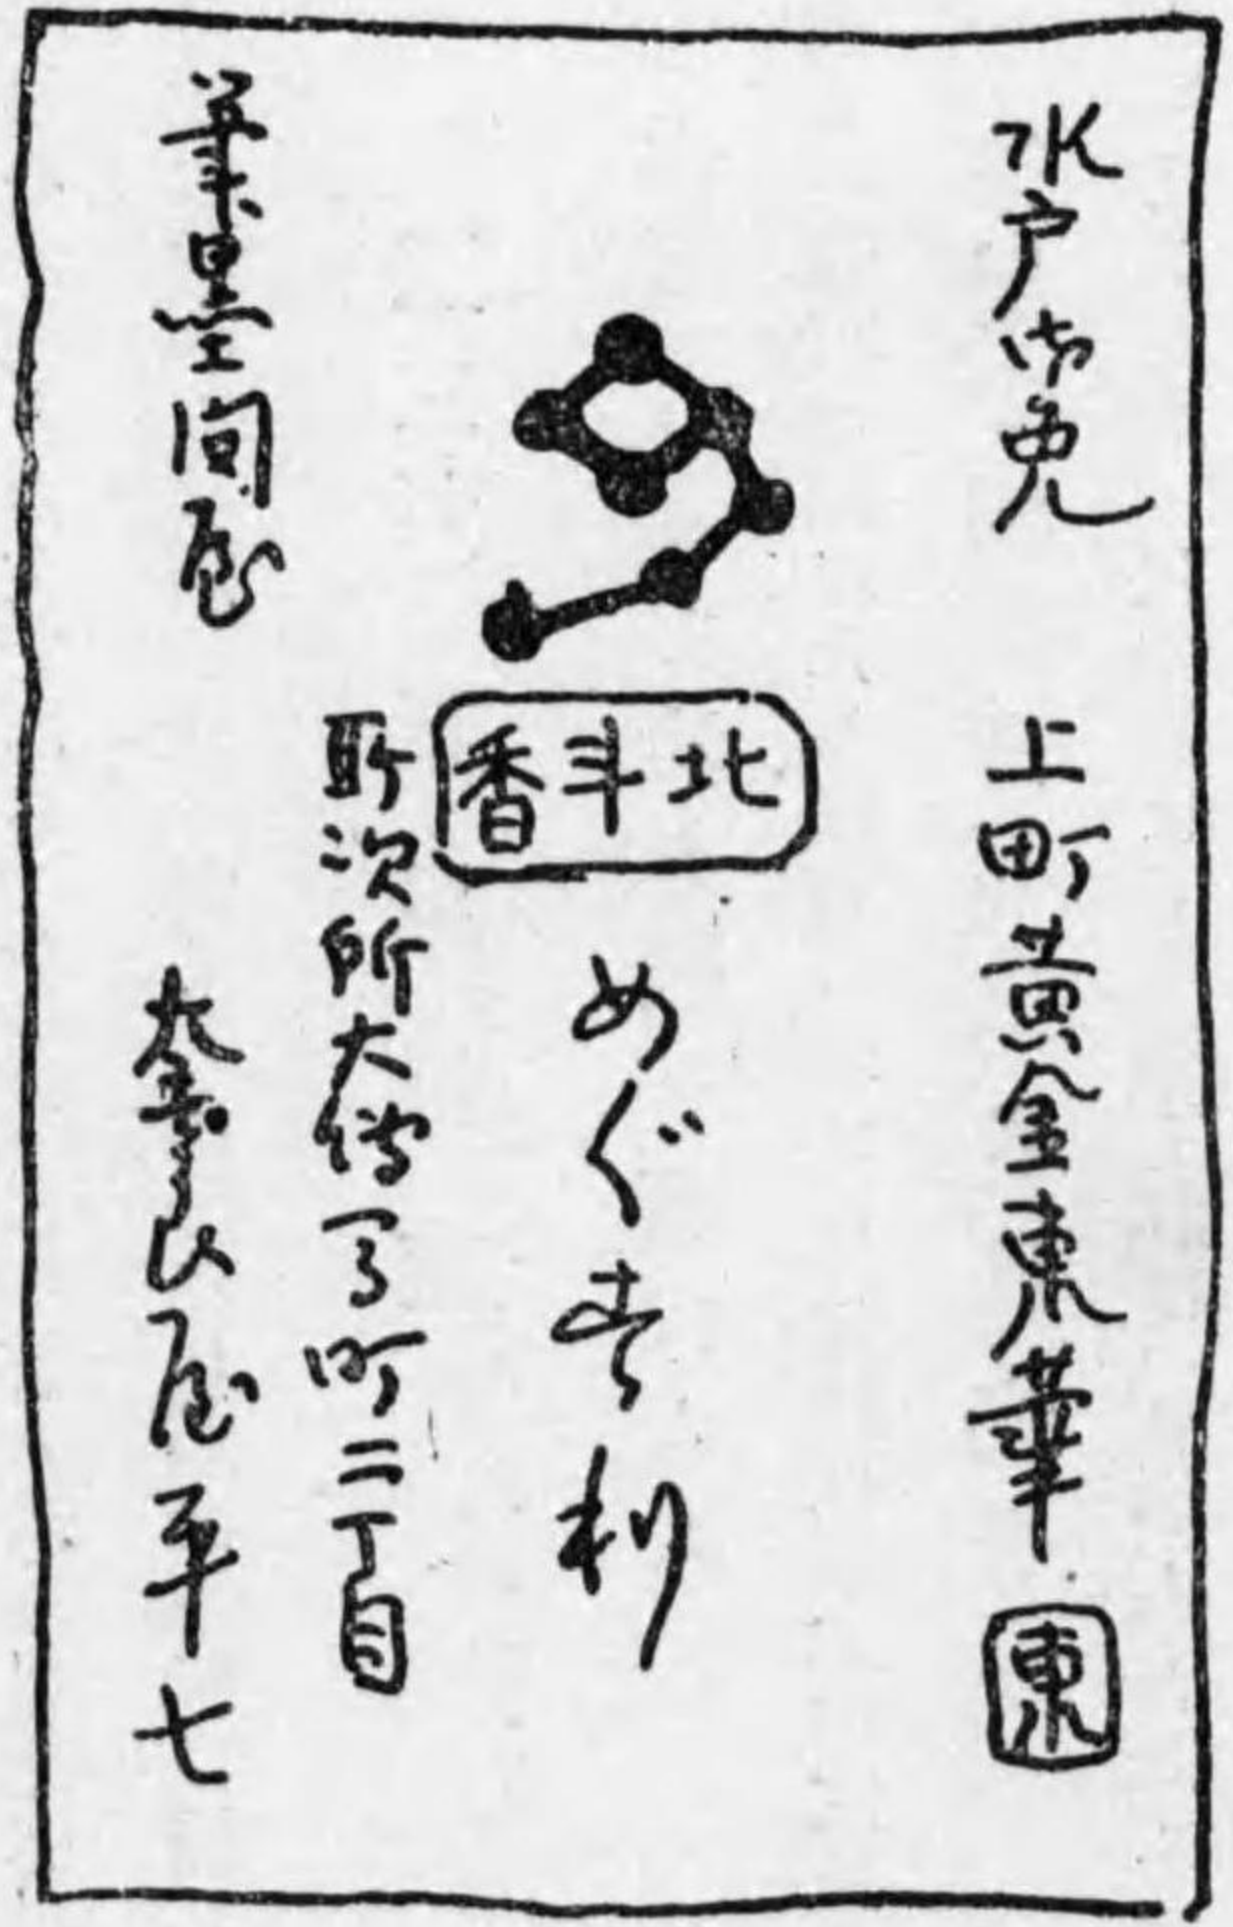 水戸御免　上町黄金東華　東
北斗香
めぐす利
取次所大傳馬町二丁目
筆墨問屋　奈良屋平七